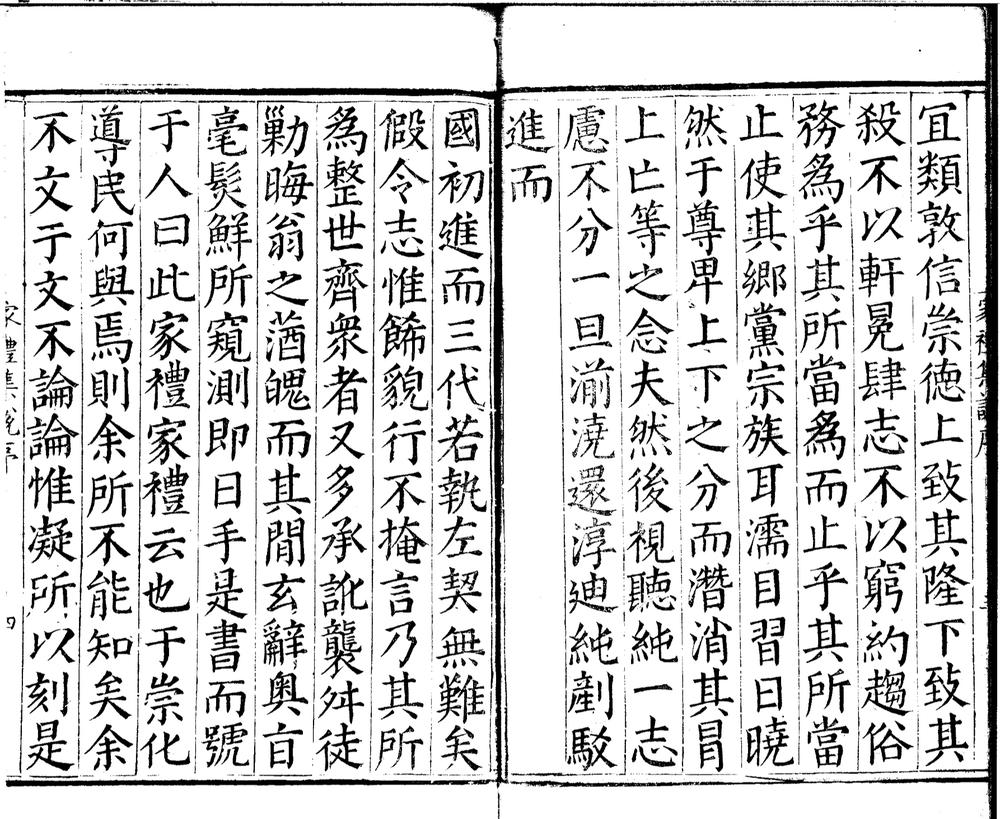 冝類敦信崇德上致其隆下致其
殺不以軒冕肆志不以窮約趨俗
務爲乎其所當爲而止乎其所當
止使其鄉黨宗族耳濡目習日曉
然于尊卑上下之分而潛消其冒
上亡等之念夫然後視聽純一志
慮不分一旦湔澆還淳迪純剷駁
進而
國初進而三代若執左契無難矣
假令志惟餙貌行不掩言乃其所
爲整世齊衆者又多承訛襲舛徒
勦晦翁之蕕魄而其間玄辭奥㫖
毫髮鮮所窺測即日手是書而號
于人曰此家禮家禮云也于崇化
導民何與焉則余所不能知矣余
不文于文不論論惟凝所以刻是
家禮集說序
四